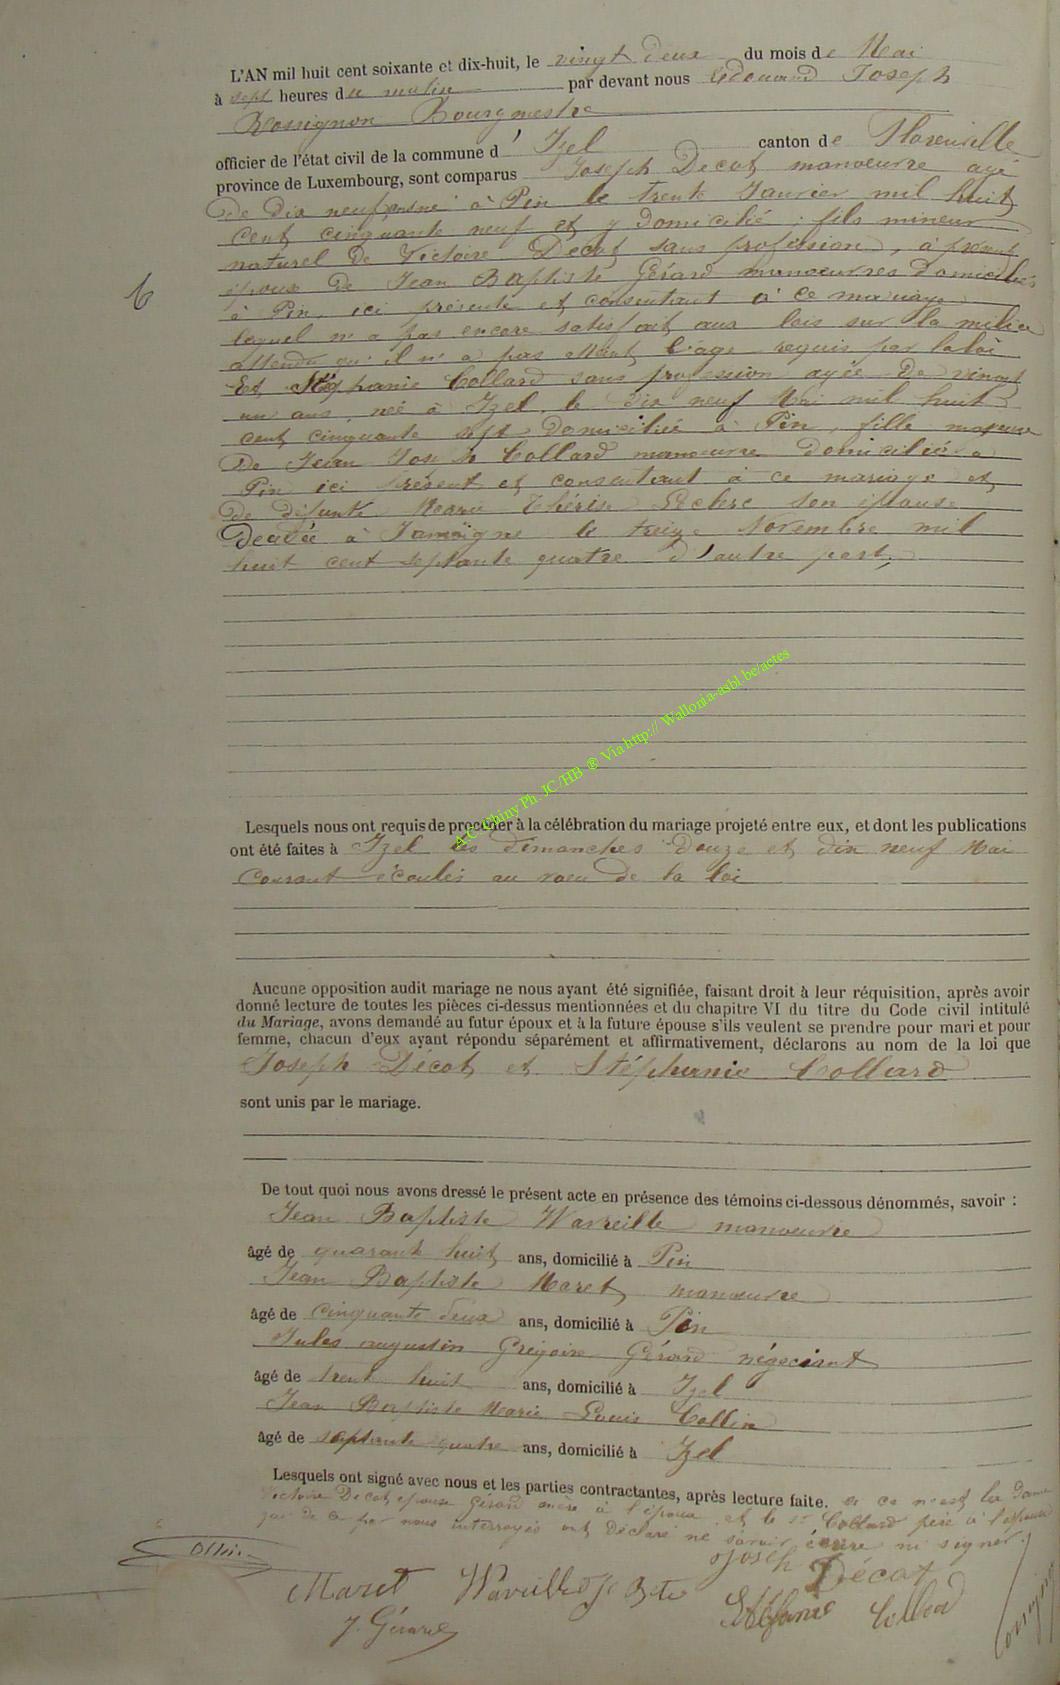 L'AN mil huit cent soixante et dix-huit, le vingt deux du mois de Mai
à sept heures du matin par devant nous Edouard Joseph
Rossignon Bourgmestre
officier de l'état civil de la commune d' Izel canton de Florenville
province de Luxembourg, sont comparus Joseph Decot manoeuvre agé
de dix neuf ans né à Pin le trente Janvier mil huit
cent cinquante neuf et y domicilié, fils mineur
naturel de Victoire Decot sans profession, à présent
épouse de Jean Baptiste Gérard manoeuvres domiciliés
à Pin, ici présente et consentant à ce mariage
lequel n'a pas encore satisfait aux lois sur la milice
attendu qu'il n'a pas atteint l'age requis par la loi
Et Stéphanie Collard sans profession agée de vingt
un ans, née à Izel, le dix neuf Mai mil huit
cent cinquante sept domiciliée à Pin, fille majeure
de Jean Joseph Collard manoeuvre domicilié à
Pin ici présent et consentant à ce mariage et
de défunte Marie Thérèse Leclerc son épouse
decédée à Jamoigne le treize Novembre mil
huit cent septante quatre d'autre part,
A.C. Chiny Ph. JC/HB ® Via http:// Wallonia-asbl.be/actes
6
Lesquels nous ont requis de procéder à la célébration du mariage projeté entre eux, et dont les publications
ont été faites à Izel les dimanches douze et dix neuf Mai
courant écoulés au voeu de la loi
Aucune opposition audit mariage ne nous ayant été signifiée, faisant droit à leur réquisition, après avoir
donné lecture de toutes les pièces ci-dessus mentionnées et du chapitre VI du titre du Code civil intitulé
du Mariage, avons demandé au futur époux et à la future épouse s'ils veulent se prendre pour mari et pour
femme, chacun d'eux ayant répondu séparément et affirmativement, déclarons au nom de la loi que
Joseph Décot et Stéphanie Collard
sont unis par le mariage.
De tout quoi nous avons dressé le présent acte en présence des témoins ci-dessous dénommés, savoir :
Jean Baptiste Warveille manoeuvre
âgé de quarante huit ans, domicilié à Pin
Jean Baptiste Maret manoeuvre
âgé de cinquante deux ans, domicilié à Pin
Jules augustin Grégoire Gérard négociant
âgé de trente huit ans, domicilié à Izel
Jean Baptiste Marie Louis Collin
âgé de septante quatre ans, domicilié à Izel
Lesquels ont signé avec nous et les parties contractantes, après lecture faite. si ce n'est la dame
Victoire Decot épouse Gérard mère à l'époux et le sr Collard père à l'épouse
qui de ce par nous interrogés ont déclaré ne savoir écrire ni signer.
Joseph Décot
Maret
Stéfanie Collard
J. Gérard